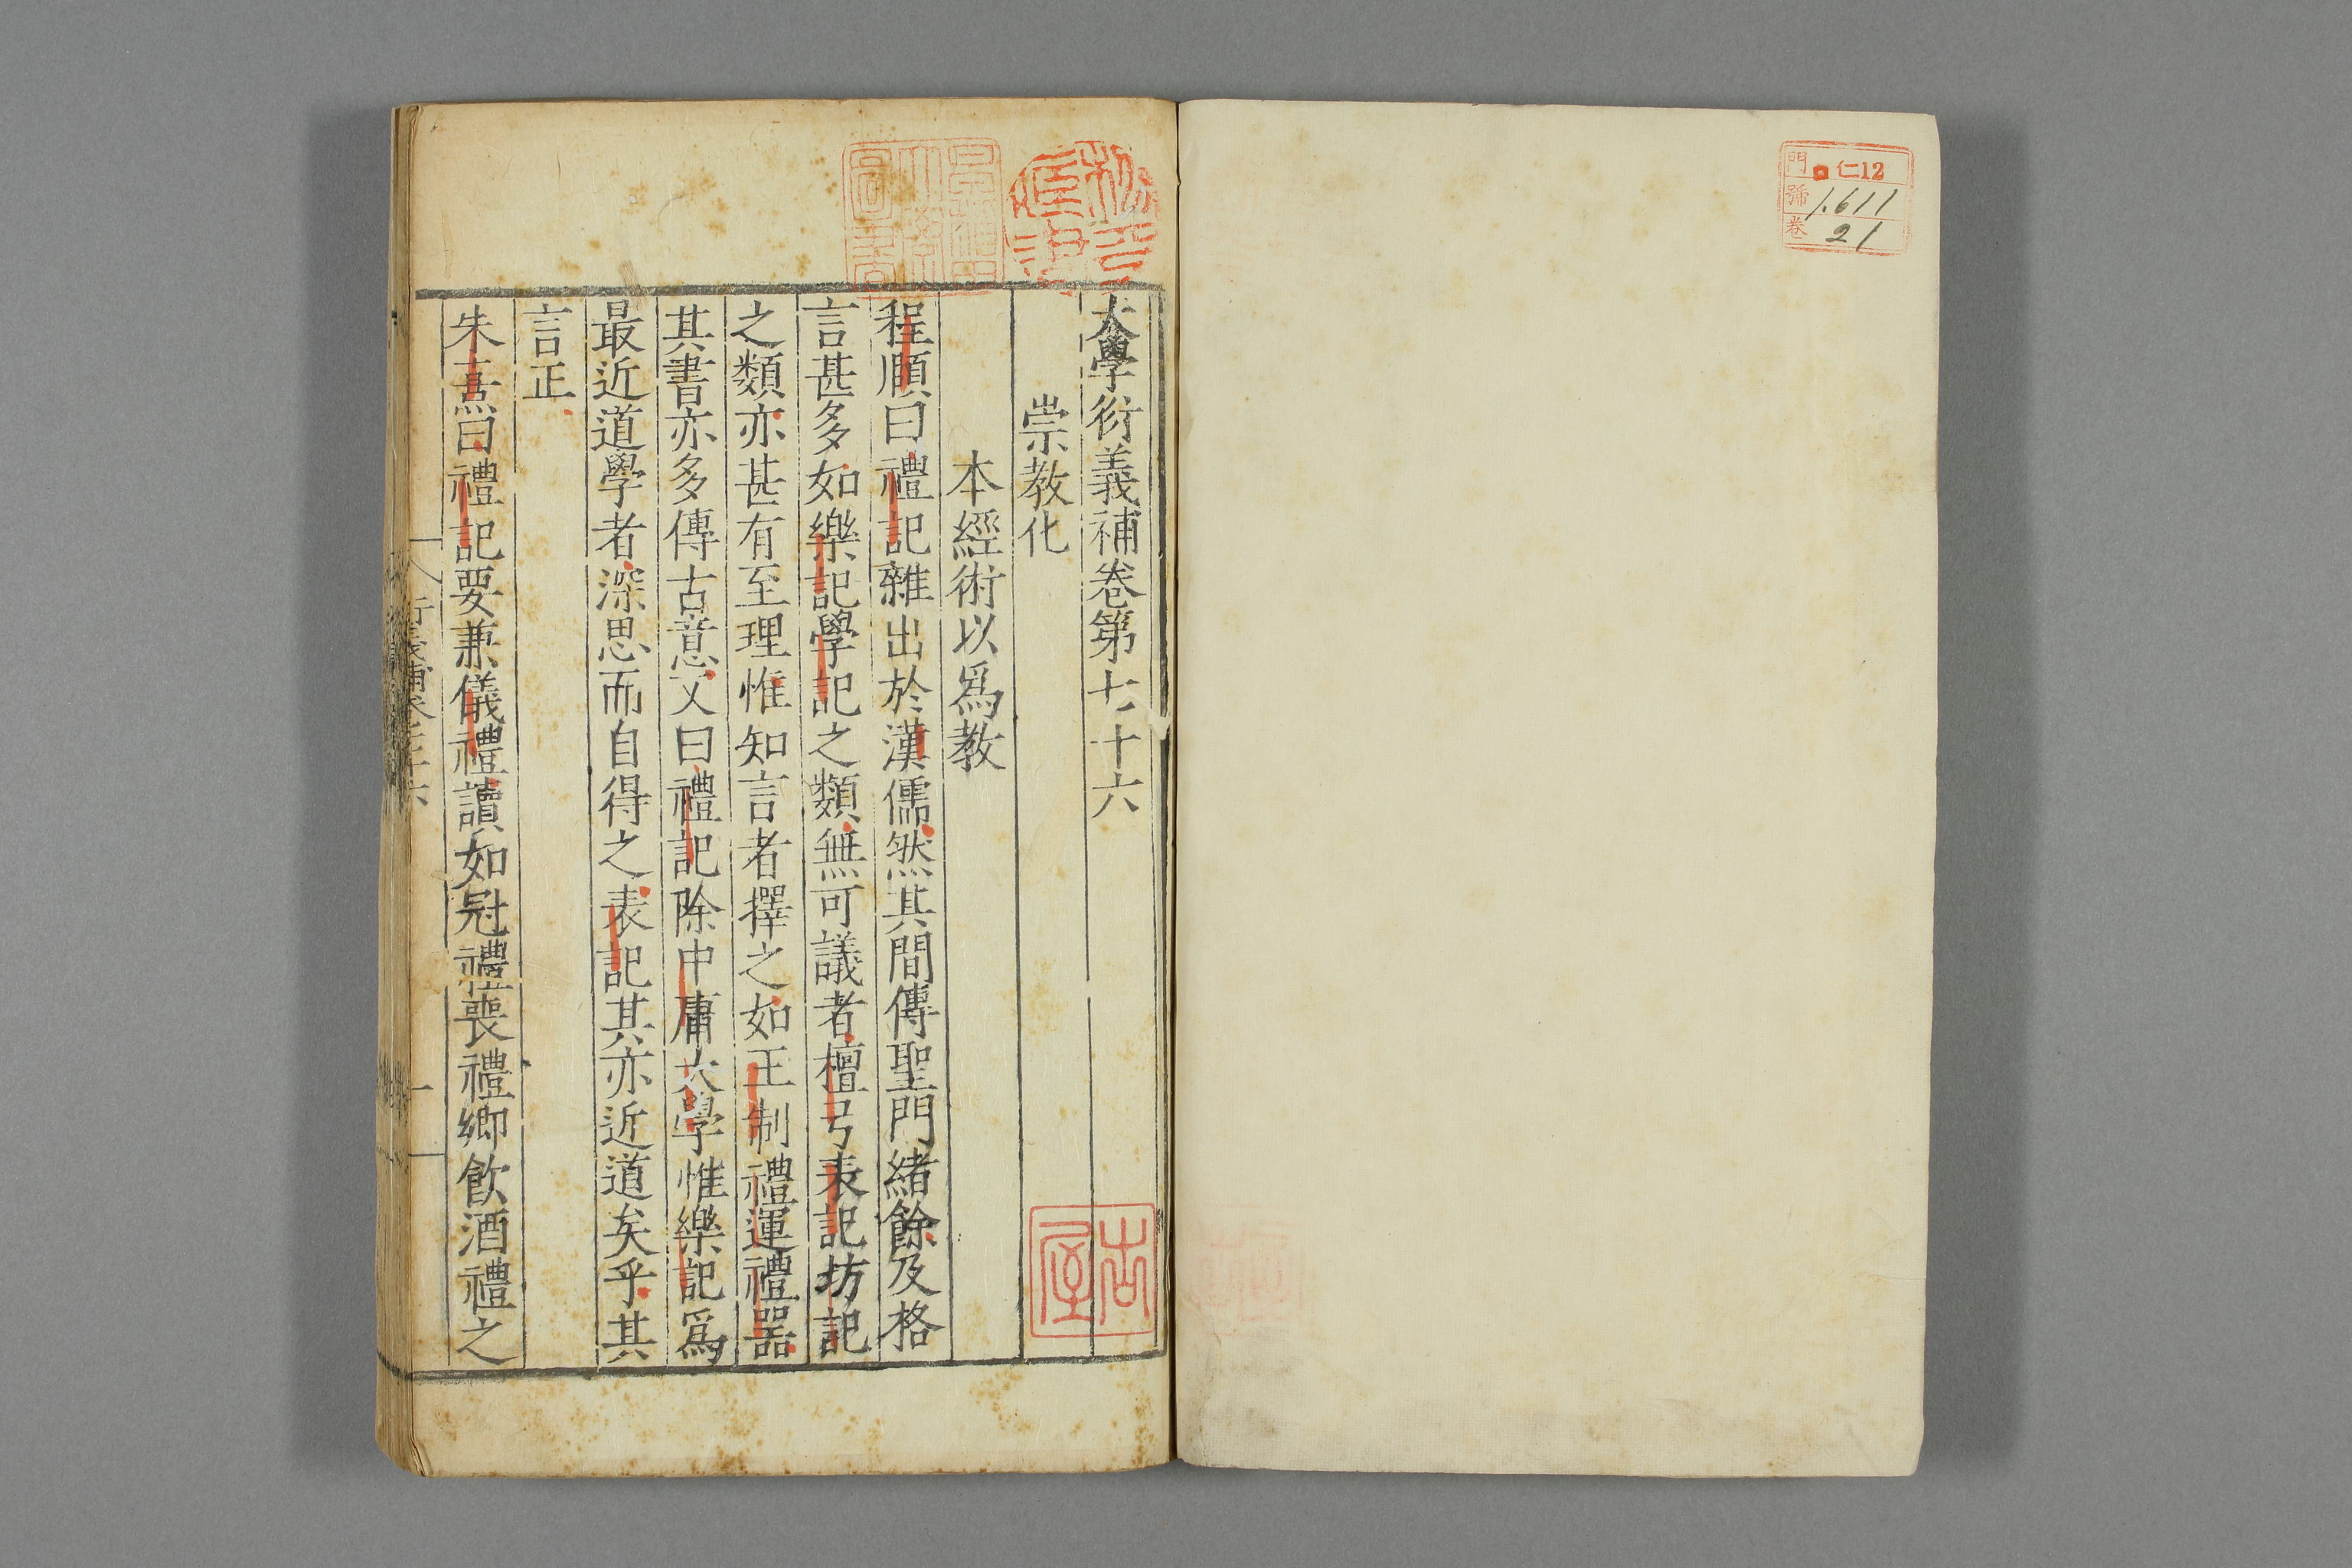 門 仁12
號 1.611
卷 21
大學衍義補卷第七十六
崇教化
本經術以爲教
程頤曰禮記雜出於漢儒然其間傳聖門緒餘及格
言甚多如樂記學記之類無可議者檀弓表記坊記
之類亦甚有至理惟知言者擇之如王制禮運禮器
其書亦多傳古意又曰禮記除中庸大學惟樂記爲
最近道學者深思而自得之表記其亦近道矣乎其
言正
朱熹曰禮記要兼儀禮讀如冠禮喪禮鄉飲酒禮之